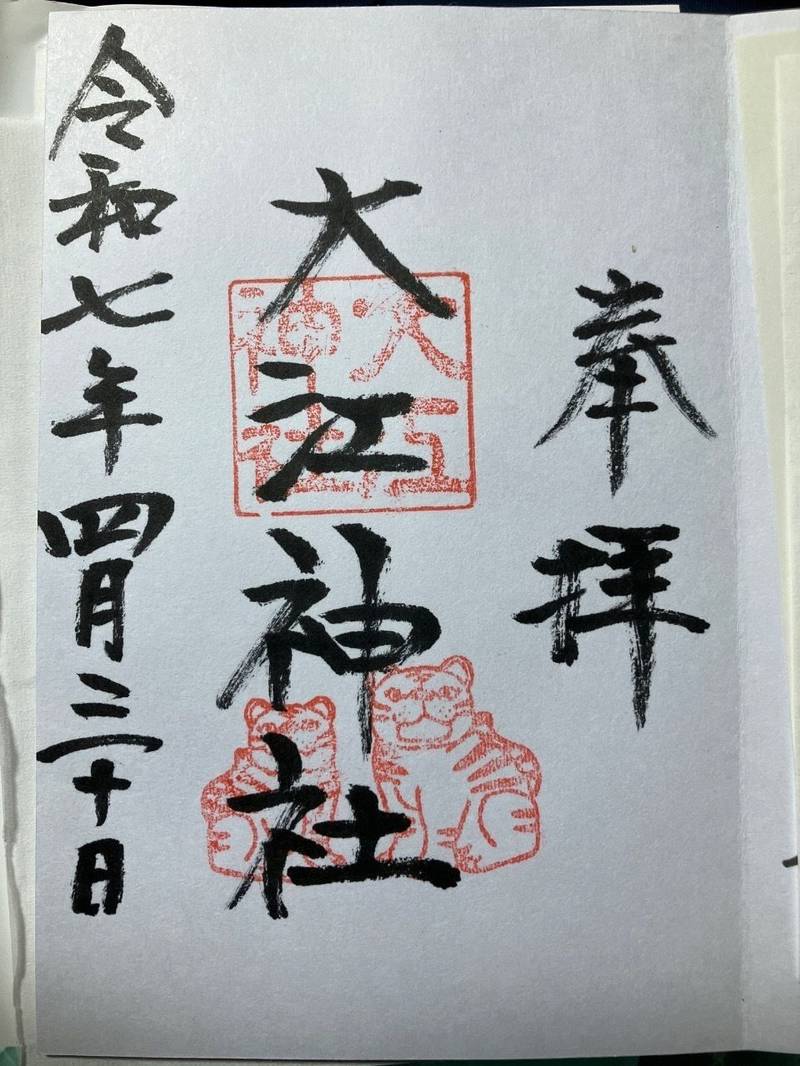 奉拝
大江神社
大江神社
令和七年四月三十日